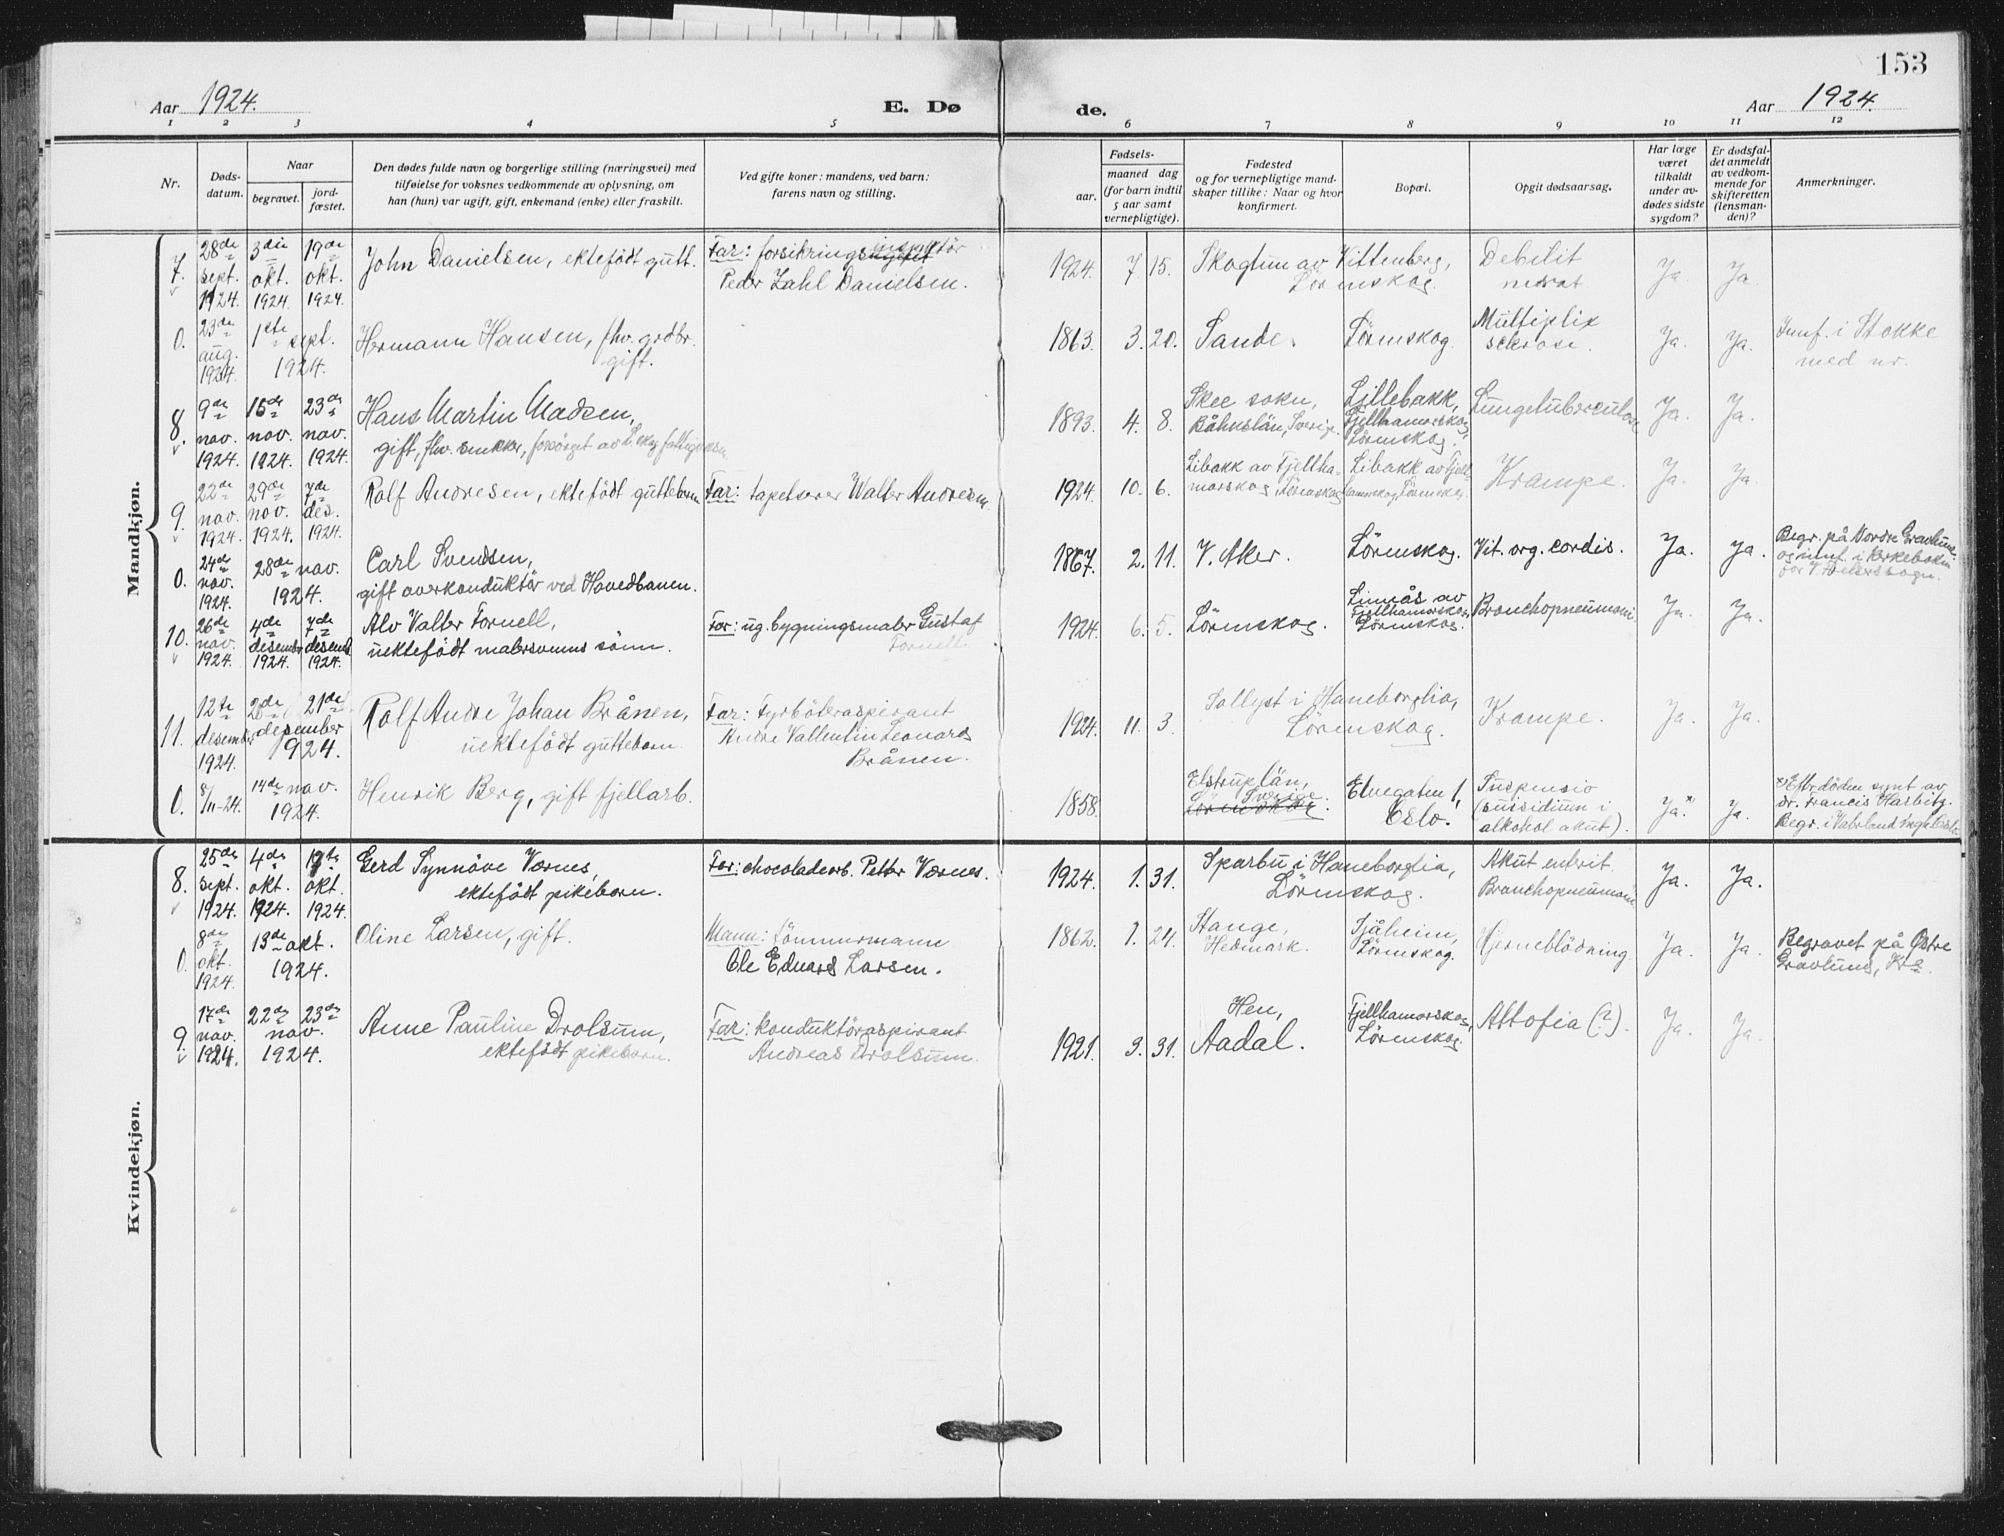 153
Aar 1924.
E. Dø
de.
Aar 1924.
1 2 3 4 5 6 7 8 9 10 11 12
Nr.
Døds-
datum.
Naar
begravet.
jord-
fæstet.
Den dødes fulde navn og borgerlige stilling (næringsvei) med
tilføielse for voksnes vedkommende av oplysning, om
han (hun) var ugift, gift, enkemand (enke) eller fraskilt.
Ved gifte koner: mandens, ved barn:
farens navn og stilling.
Fødsels-
aar.
maaned dag
(for barn indtil
5 aar samt
vernepligtige).
Fødested
og for vernepligtige mand-
skaper tillike: Naar og hvor
konfirmert.
Bopæl.
Opgit dødsaarsag.
Har læge
været
tilkaldt
under av-
dødes sidste
sygdom?
Er dødsfal-
det anmeldt
av vedkom-
mende for
skifteretten
(lensman-
den)?
Anmerkninger.
Mandkjøn.
7.
28de sept. 1924.
3die okt. 1924.
19de okt. 1924.
John Danielsen, ektefödt gutt.
Far: forsikringsinspektör
Peder Zahl Danielsen.
1924. 7. 15.
Skogtun av Vittenberg,
Lörenskog.
Debilit
Ja. Ja.
0.
23de aug. 1924.
1ste sept. 1924.
Hermann Hansen, fhv. grdbr.
gift.
1863. 3. 20.
Sande.
Lörenskog.
Multiplix
sclerose.
Ja. Ja.
Innf. i Stokke
med nr.
8.
9de nov. 1924.
16de nov. 1924.
23de nov. 1924.
Hans Martin Madsen,
gift, fhv. snekker, forsörget av L.skog fattigvesen
1893. 4. 8.
Skee sokn,
Båhuslän, Sverige.
Lillebakk,
Fjellhamarskog,
Lörenskog.
Lungetuberculose
Ja. Ja.
9.
22de nov. 1924.
29de nov. 1924.
7de des. 1924.
Rolf Andresen, ektefödt guttebarn
Far: tapetserer Walter Andresen
1924. 10. 6.
Libakk av Fjellha-
marskog, Lörenskog
Libakk av Fjell-
hamarskog, Lörenskog.
Krampe.
Ja. Ja.
0.
24de nov. 1924.
28de nov. 1924.
Carl Svendsen,
gift overkonduktör ved Hovedbanen.
1867. 2. 11.
V. Aker.
Lörenskog.
Vit. org. cordis.
Ja. Ja.
Begr. på Nordre Gravlund
og innf. i kirkeboken
for V. Akers sogn.
10.
26de nov. 1924.
4de desember 1924.
7de desemb. 1924.
Alv Valter Fornell,
uektefödt malersvenns sönn.
Far: ug. bygningsmaler Gustaf
Fornell.
1924. 6. 5.
Lörenskog.
Linnås av
Fjellhamarskog,
Lörenskog.
Bronchopneumoni
Ja. Ja.
11.
12te desember 1924.
20de 21de desember 1924.
Rolf Andre Johan Brånen,
uektefödt guttebarn.
Far: Fyrböteraspirant
Andre Vallentin Leonard
Brånen.
1924. 11. 3.
Sollyst i Haneborglia,
Lörenskog.
Krampe.
Ja. Ja.
0.
8/11-24.
14de nov. 1924.
Henrik Berg, gift fjellarb.
1858.
Elstruplän,
Sverige.
Lörenskog
Elvegaten 1,
Oslo.
Suspensio
(suisidium i
alkohol akut).
Ja.x) Ja.
x) Efter döden synt av
dr. Francis Harbitz.
Begr. i Vålerland Oslo
Kvindekjøn.
8.
25de sept. 1924.
4de okt. 1924.
17te okt. 1924.
Gerd Synnöve Værnes,
ektefödt pikebarn.
Far: chocoladearb. Petter Værnes.
1924. 1. 31.
Sparbu i Haneborglia,
Lörenskog.
Akut enterit.
Bronchopneumoni
Ja. Ja.
0.
8de okt. 1924.
13de okt. 1924.
Oline Larsen, gift.
Mann: tömmermann
Ole Edvard Larsen.
1862. 7. 24.
Stange,
Hedmark.
Sjåheim,
Lörenskog.
Hjerneblödning.
Ja. Ja.
Begravet på Östre
Gravlund, Kra.
9.
17de nov. 1924.
22de 23de nov. 1924.
Anne Pauline Drolsum,
ektefödt pikebarn.
Far: konduktöraspirant
Andreas Drolsum.
1921. 3. 31.
Hen,
Aadal.
Fjellhamarskog,
Lörenskog.
Attofia (?).
Ja. Ja.